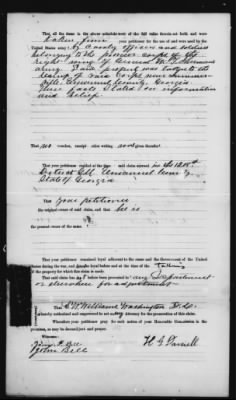 That all the items in the above schedule were of the full value therein set forth, and were
taken from your petitioner for the use of and were used by the
United States army, by a body officers and soldiers
belonging to the pioneer corps of the
right wing of General W. T. Sherman's
army. Said property was taken to the
of said Corps near Summer-
ville Emanuel County Georgia
These facts stated on information
and belief.
That no voucher, receipt or other writing was given therefor.
That your petitioner resided at the time said claim accrued in the 12 &
District G.M. Emanuel County
State of Georgia
That your petitioner
the original owner of said claim, and that he is
the present owner of the same.
That your petitioner remained loyally adherent to the cause and the Government of the United
States during the war, and was so loyal before and at the time of the taking
of the property for which this claim is made.
That said claim has not before been presented to any Department
or elsewhere for adjustment
That A. W. Williams Washington D.C.
is hereby authorized and empowered to act as my Attorney for the prosecution of this claim.
Wherefore your petitioner prays for such action of your Honorable Commission in the
premises, as may be deemed just and proper.
Witnesses:
Bell
John Bell
H G